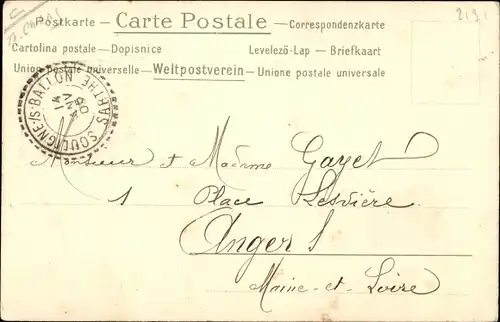 Postkarte — Carte Postale — Correspondenzkarte
Cartolina postale — Dopisnice Levelező-Lap — Briefkaart
Union postale universelle — Weltpostverein — Unione postale universale
SOULIGNÉ-S-BALLON SARTHE
14
Monsieur et Madame Gayet
1 Place Lesvière
Angers
Maine-et-Loire